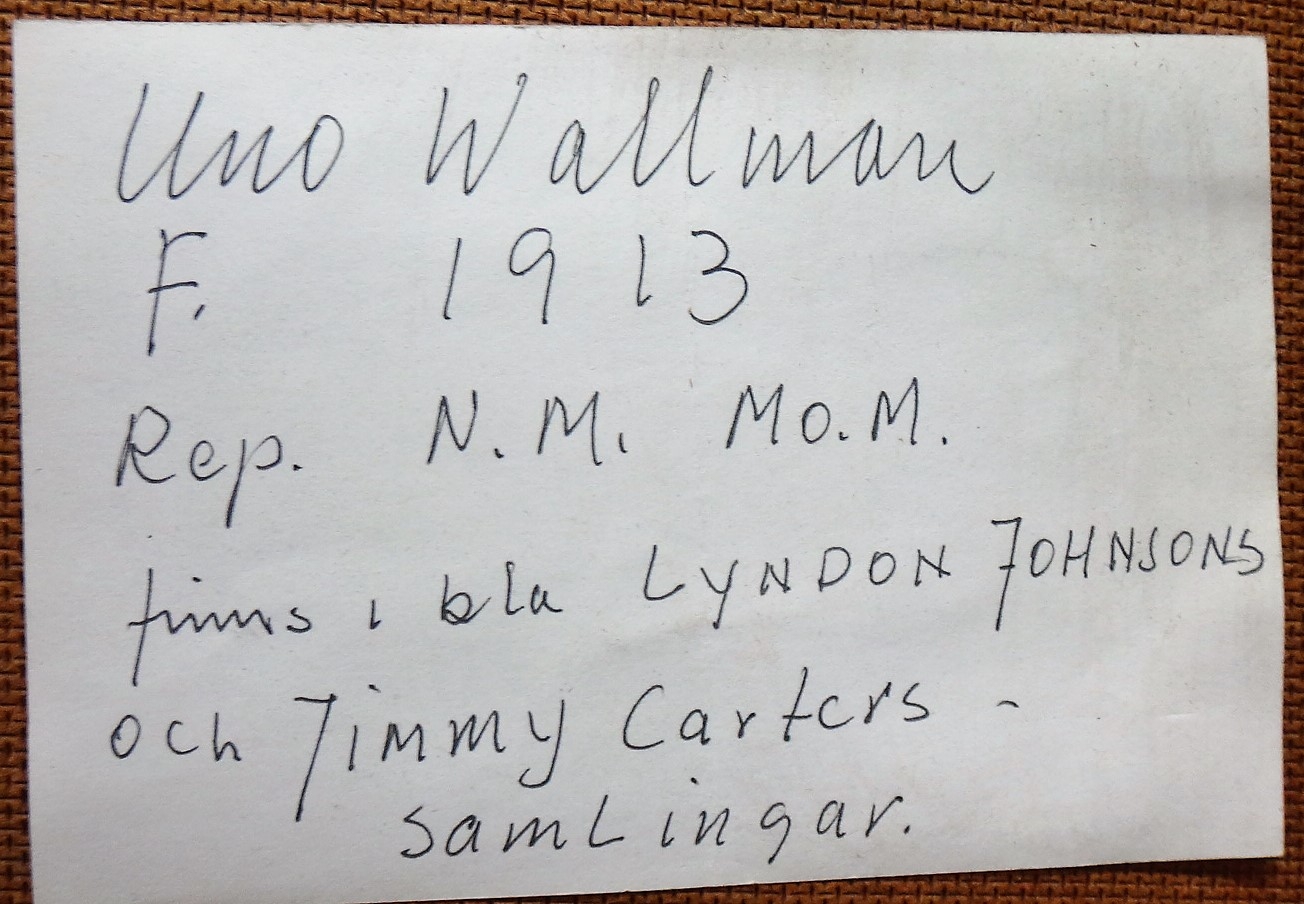 Uno Wallman
F. 1913
Rep. N.M. Mo.M.
finns i bla LYNDON JOHNSONS
och Jimmy Carters -
samlingar.